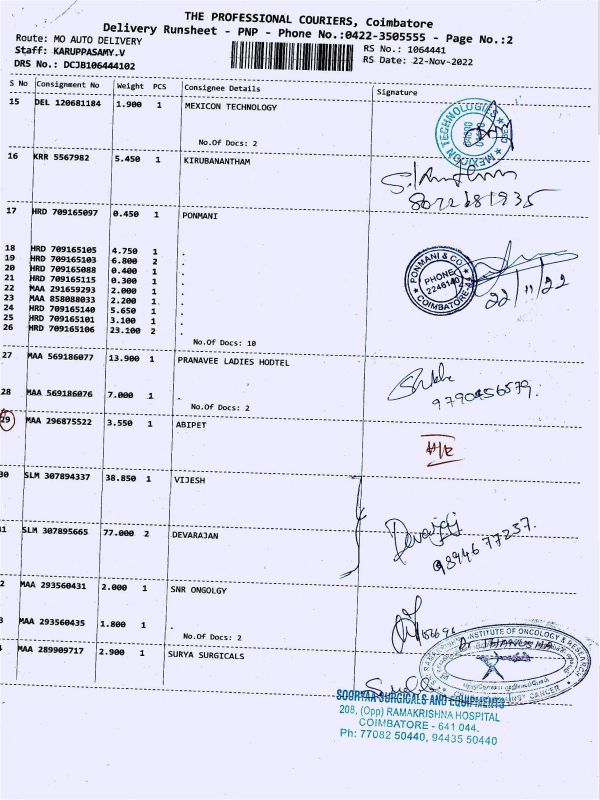 THE PROFESSIONAL COURIERS, Coimbatore
Delivery Runsheet - PNP - Phone No.:0422-3505555 - Page No.:2
Route: MO AUTO DELIVERY
Staff: KARUPPASAMY.V
DRS No.: DCJB106444102
RS No.: 1064441
RS Date: 22-Nov-2022
S No Consignment No Weight PCS Consignee Details Signature
15 DEL 120681184 1.900 1 MEXICON TECHNOLOGY
No.Of Docs: 2
MEXICON TECHNOLOGIES
16 KRR 5567982 5.450 1 KIRUBANANTHAM
17 HRD 709165097 0.450 1 PONMANI
18 HRD 709165105 4.750 1 .
19 HRD 709165103 6.800 2 .
20 HRD 709165088 0.400 1 .
21 HRD 709165115 0.300 1 .
22 MAA 291659293 2.000 1 .
23 MAA 858088033 2.200 1 .
24 HRD 709165140 5.650 1 .
25 HRD 709165101 3.100 1 .
26 HRD 709165106 23.100 2 .
No.Of Docs: 10
PONMANI & CO
PHONE
2246140
COIMBATORE-44
22/11/22
27 MAA 569186077 13.900 1 PRANAVEE LADIES HODTEL
28 MAA 569186076 7.000 1 .
No.Of Docs: 2
9790456579.
29 MAA 296875522 3.550 1 ABIPET
30 SLM 307894337 38.850 1 VIJESH
31 SLM 307895665 77.000 2 DEVARAJAN
Devaraj
9894677237.
2 MAA 293560431 2.000 1 SNR ONGOLGY
3 MAA 293560435 1.800 1 .
No.Of Docs: 2
INSTITUTE OF ONCOLOGY & RESEARCH
4 MAA 289909717 2.900 1 SURYA SURGICALS
SOORYAA SURGICALS AND EQUIPMENTS
208, (Opp) RAMAKRISHNA HOSPITAL
COIMBATORE - 641 044.
Ph: 77082 50440, 94435 50440